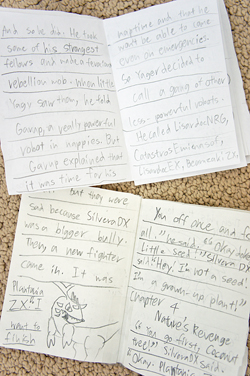 And so he did. He took
some of his strongest
fellows and made a
rebellion mob. When little
Yagy saw them, he told
Gavnp, a really powerful
robot in nappies. But
Gavnp explained that
it was time for his
naptime and that he
won't be able to come
even on emergencies.
So Yagar decided to
call a gang of other
less powerful robots.
He called LiserdorNRG,
LiserdorEX,
but they were
sad because SilveraDX
was a bigger bully.
Then a new fighter
came in. It was
Plantania
ZX*I
want to
finish
You off once and for
all," he said. "Okay
Little seed" SilveraDX
said "Hey, I'm not a seed!
I'm a grown-up plant!"
Chapter 4
Nature's Revenge
" You go first, Coconut
tree!" SilveraDX said.
"Okay. Plantania